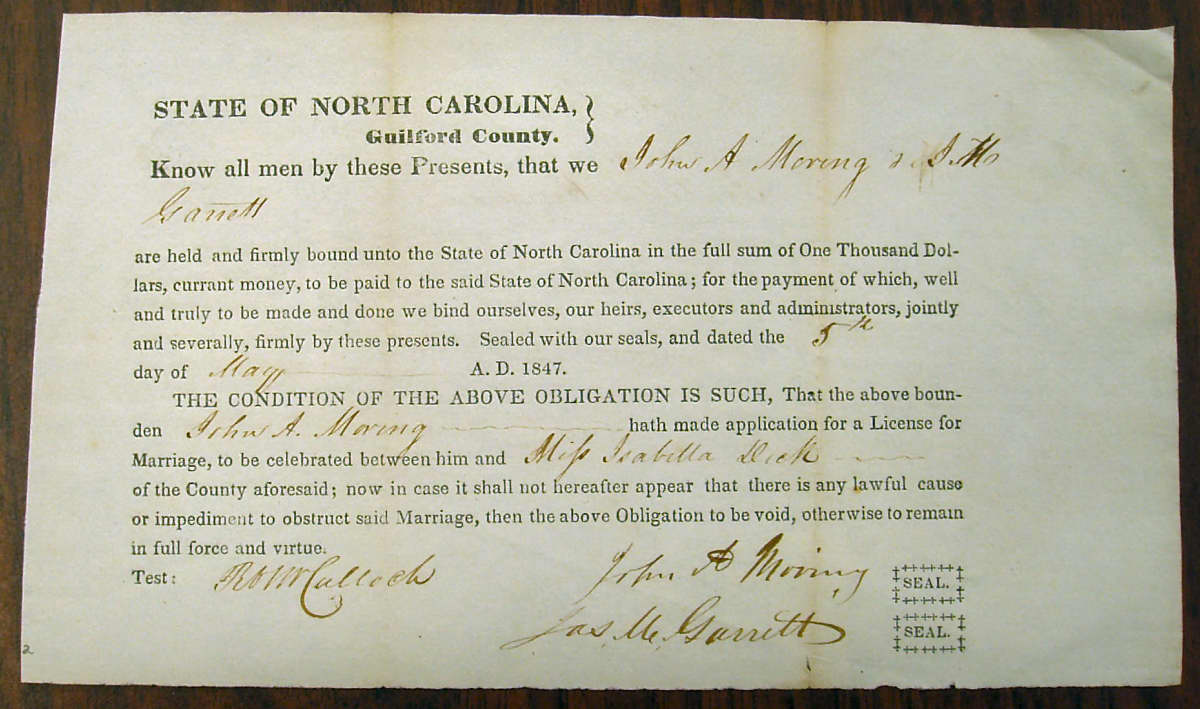 STATE OF NORTH CAROLINA,
Guilford County.
Know all men by these Presents, that we John A Moring & J. M.
Garrett
are held and firmly bound unto the State of North Carolina in the full sum of One Thousand Dol-
lars, currant money, to be paid to the said State of North Carolina; for the payment of which, well
and truly to be made and done we bind ourselves, our heirs, executors and administrators, jointly
and severally, firmly by these presents. Sealed with our seals, and dated the 5th
day of May A. D. 1847.
THE CONDITION OF THE ABOVE OBLIGATION IS SUCH, That the above boun-
den John A. Moring hath made application for a License for
Marriage, to be celebrated between him and Miss Isabella Dick
of the County aforesaid; now in case it shall not hereafter appear that there is any lawful cause
or impediment to obstruct said Marriage, then the above Obligation to be void, otherwise to remain
in full force and virtue.
Test: McCulloch John A Moring SEAL.
Jas. M. Garrett SEAL.
2